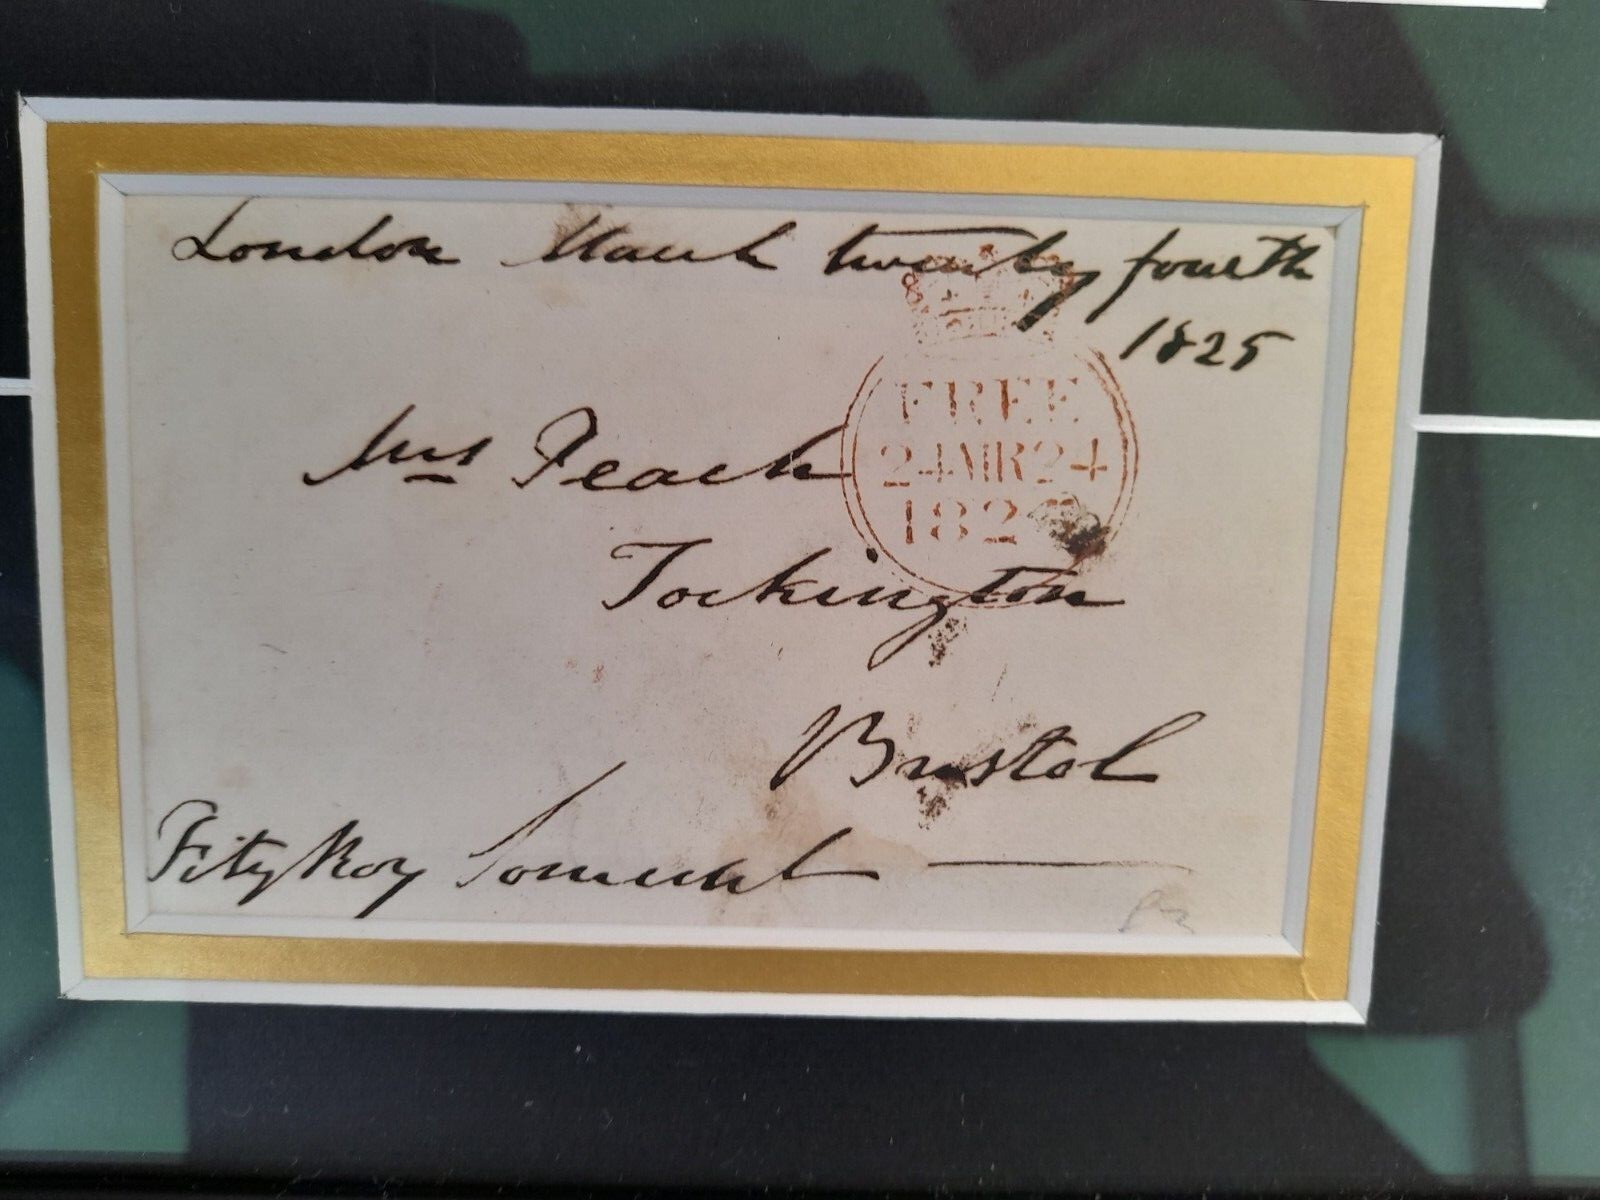 London March twenty fourth
1825
Mrs Peach
FREE
24MR24
182
Tockington
Bristol
FitzRoy Somerset